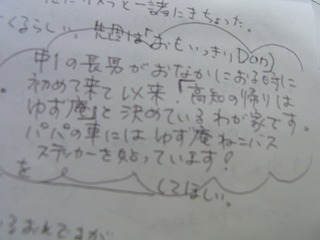 と一諸にきちょった。
くるらしい
先週は「おもいっきりDon」
中1の長男がおなかにおる時に
初めて来て以来、「高知の帰りは
ゆず庵」と決めているわが家です。
パパの車には ゆず庵ねこバス
ステッカーを貼っています?
を
してほしい。